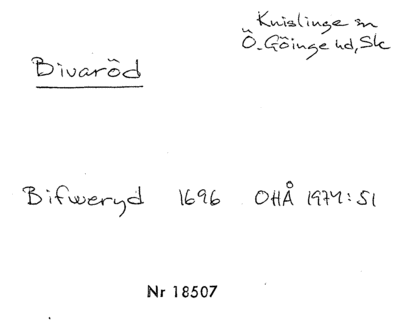 Knislinge sn
Ö. Göinge hd, Sk
Bivaröd
Bifweryd 1696 OHÅ 1974: 51
Nr 18507